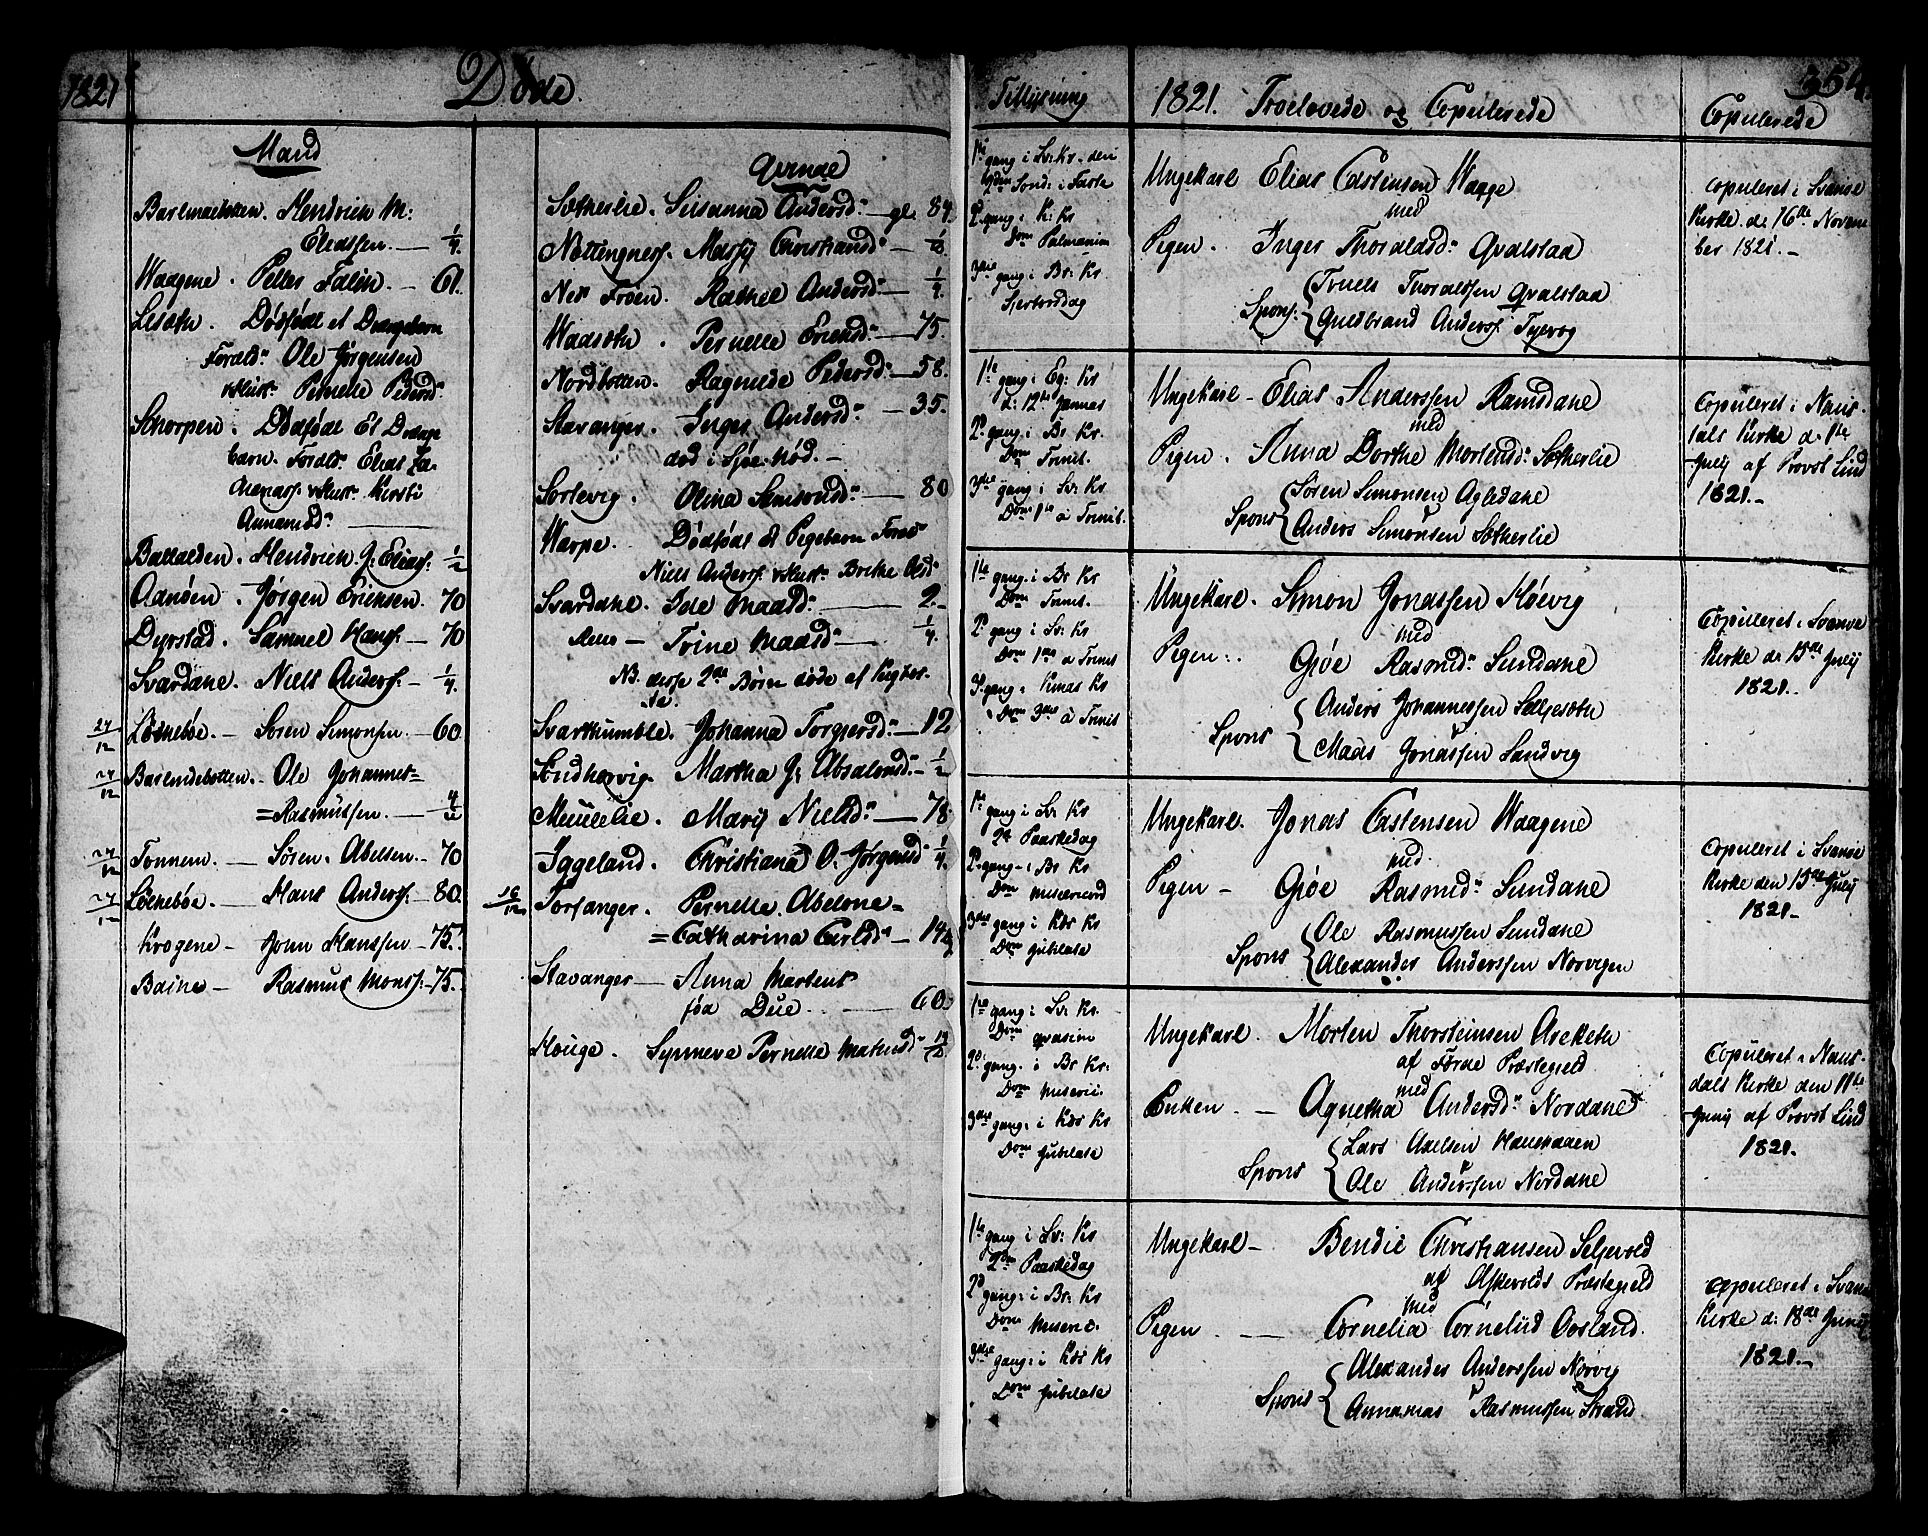 1821
Døde.
Mand
Barlindbotten. Hendrich M:
Eliassen. — 1/4
Waagene. Petter Falch. — 61.
Lesøth. Dødfødt et Drengebarn
Foræld: Ole Jørgensen
& Hustr: Pernelle Pedersd:
Schorpen. Dødfødt Et Drenge
barn. Foræld: Elias
& Hustr: Kirsti
Ballalden. Hendrich J: Elias: 1/2
Aanden. Jørgen Erichsen. 70
Dyrstad. Samuel Hans: — 70
Svardahl. Niels Anders: — 1/4.
24/12 Løchebøe. — Søren Simonsen. — 60
24/12 Barlindbotten. — Ole Johannes=
=Rasmussen. —
24/12 Tonnem. — Søren Abelsen. — 70
24/12 Løchebøe. — Hans Anders: — 80
Krogene — Jonn Hanssen — 75.
— Rasmus Mons: — 75.
Qvinde
Sætherlie. Susanna Andersd: — gl. 84.
Nøttingnes: Massy Christiansd: —
Ner Froen. Rachel Andersd: — 1/4.
Waasøth. Pernelle Erichsd: — 75.
Nordbotten. Ragnilde Pedersd: — 58.
Stavanger. Inger Andersd: — 35.
død i Søe nød. —
Sortevig. Olina Samsonsd: — 80
Warpe. Dødfødt Et Pigebarn Foræld:
Niels Anders: & Hustr: Brethe Olsd:
Svardahl. Ide Maasd: — 2. —
— Trine Maasd: — 1/4.
NB. disse 2de Børn døde af Kighos-
te.
Svarthumble. Johanna Torgiersd: — 12
Indhervig. Martha J: Absalonsd: — 1/2
Meüelie. Mary Nielsd: — 78
Iggeland. Christiana O. Jørgensd: 1/4.
16/12 Torfanger. Pernelle Abelone=
=Catharina Carlsd: — 14
Stavanger — Anna Martens
fød Due. — 60
Houge. Synneve Pernelle Mathisd:
354.
Tillysning
1821. Troelovede og Copulerede
Copulerede
1te gang i Sv: Kr. den
Sønd: i Faste
2. gang i K: Kr
Dom Palmarum
3die gang i Br: Kr.
Skiertorsdag
Ungekarl Elias Castensen Waage
med
Pigen. Inger Thoraldsd: Qvalstaa
Spons: Truels Thoraldsen Qvalstaa
Guldbrand Anders: Tyevog
Copuleret i Svanøe
Kirke d. 16de Novem-
ber 1821. —
1te gang i Eg: Kr
d: 12te Jannas
2. gang: i Br: Kr.
Dom Trinit.
3die gang i Sv: Kr
Dom 1te à Trinit.
Ungekarl — Elias Anderssen Ramsdahl
med
Pigen. Anna Dorthe Mortensd: Sætherlie
Spons Søren Simonsen Agledahl
Anders Simonsen Sætherlie
Copuleret i Naus-
tdals Kirke d: 1te
July af Provst Lind
1821. —
1te gang i Br Kr
Dom Trinit.
2. gang i Sv: Kr
Dom 1ma à Trinit
3. gang i Kinds Kr
Dom 3de à Trinit
Ungekarl. Simon Jonassen Høevig
med
Pigen: Giøe Rasmd: Sundahl
Spons Anders Johannessen Selljesøth
Mads Jonassen Sandvig
Copuleret i Svanøe
Kirke d: 15de July
1821.
1te gang i Sv: Kr
2de Paaskedag
2. gang i Br Kr
Dom Misericord
3die gang i Kdr Kr
Dom Jubilate
Ungekarl. Jonas Castensen Waagene
med
Pigen — Giøe Rasmd: Sundahl
Spons Ole Rasmussen Sundahl
Alexander Anderssen Norvigen
Copuleret i Svanøe
Kirke den 15de July
1821 —
1te gang: i Sv: Kr.
Dom qvasim
2. gang: i Br Kr:
Dom Misericc.
3die gang: i Kdr Kr
Dom Jubilate
Ungekarl. Morten Thorsteinsen
af Førde Præstegield
med
Enken. — Agnetha Andersd: Nordahl
Spons Lars Axelsen
Ole Anderssen Nordahl
Copuleret i Naus-
tdals Kirke den 11te
July af Provst Lind
1821.
1te gang i Sv: Kr
2den Paaskedag
2d gang: i Br: Kr
Dom Miseric.
3die gang: i Kdr Kr
Dom Jubilate
Ungekarl — Bendic Christiansen Seljevold
af Askevolds Præstegield
med
Pigen — Cornelia Cornelisd Oosland.
Spons Alexander Anderssen Norvig
Annanias Rasmussen Strand.
Copuleret i Svanøe
Kirke d: 18de Juny
1821. —